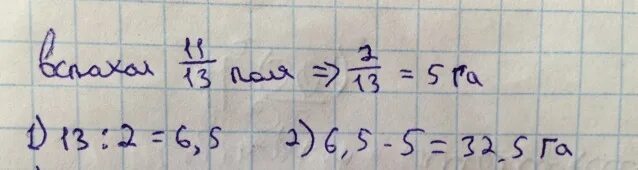 вспахал 11/13 поля => 2/13 = 5 га
1) 13 : 2 = 6,5 2) 6,5 - 5 = 32,5 га